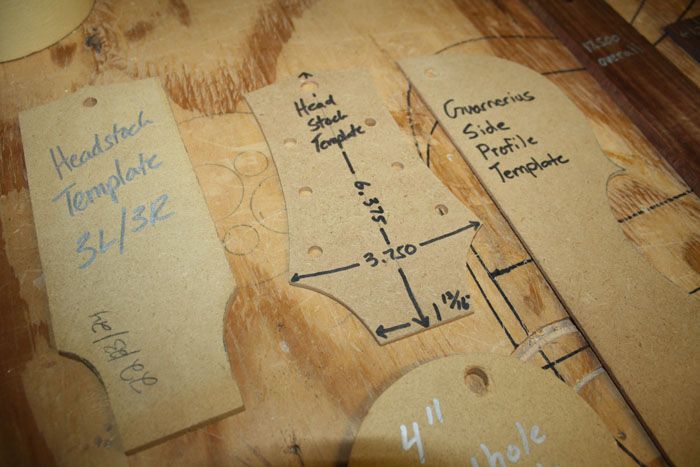 Headstock
Template
3L/3R
Head
Stock
Template
6.375
3.750
1 13/16"
Guarnerius
Side
Profile
Template
4"
hole
12.500
overall